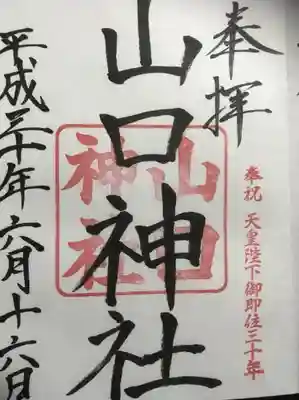 奉拝
奉祝 天皇陛下御即位三十年
山口神社
山口
神社
平成三十年六月十六日